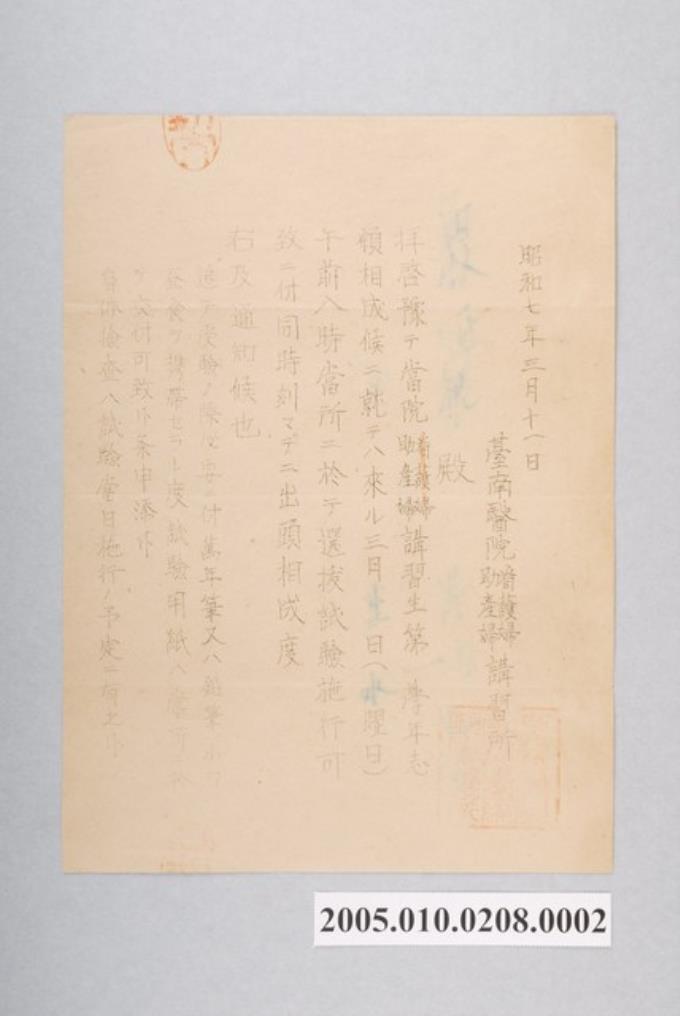 昭和七年三月十一日
臺南醫院看護婦助產婦講習所
殿
拝啓豫テ當院看護婦助產婦講習生第一學年志
願相成候ニ就テハ來ル三月 日(水曜日)
午前八時當所ニ於テ選拔試驗施行可
致ニ付同時刻マデニ出頭相成度
右及通知候也
追テ受驗ノ際ハ 付萬年筆又ハ鉛筆
試驗用紙ハ當所ニ於
テ交付可致 条申添
身体檢查ハ試驗當日施行ノ予定ニ有之
2005.010.0208.0002